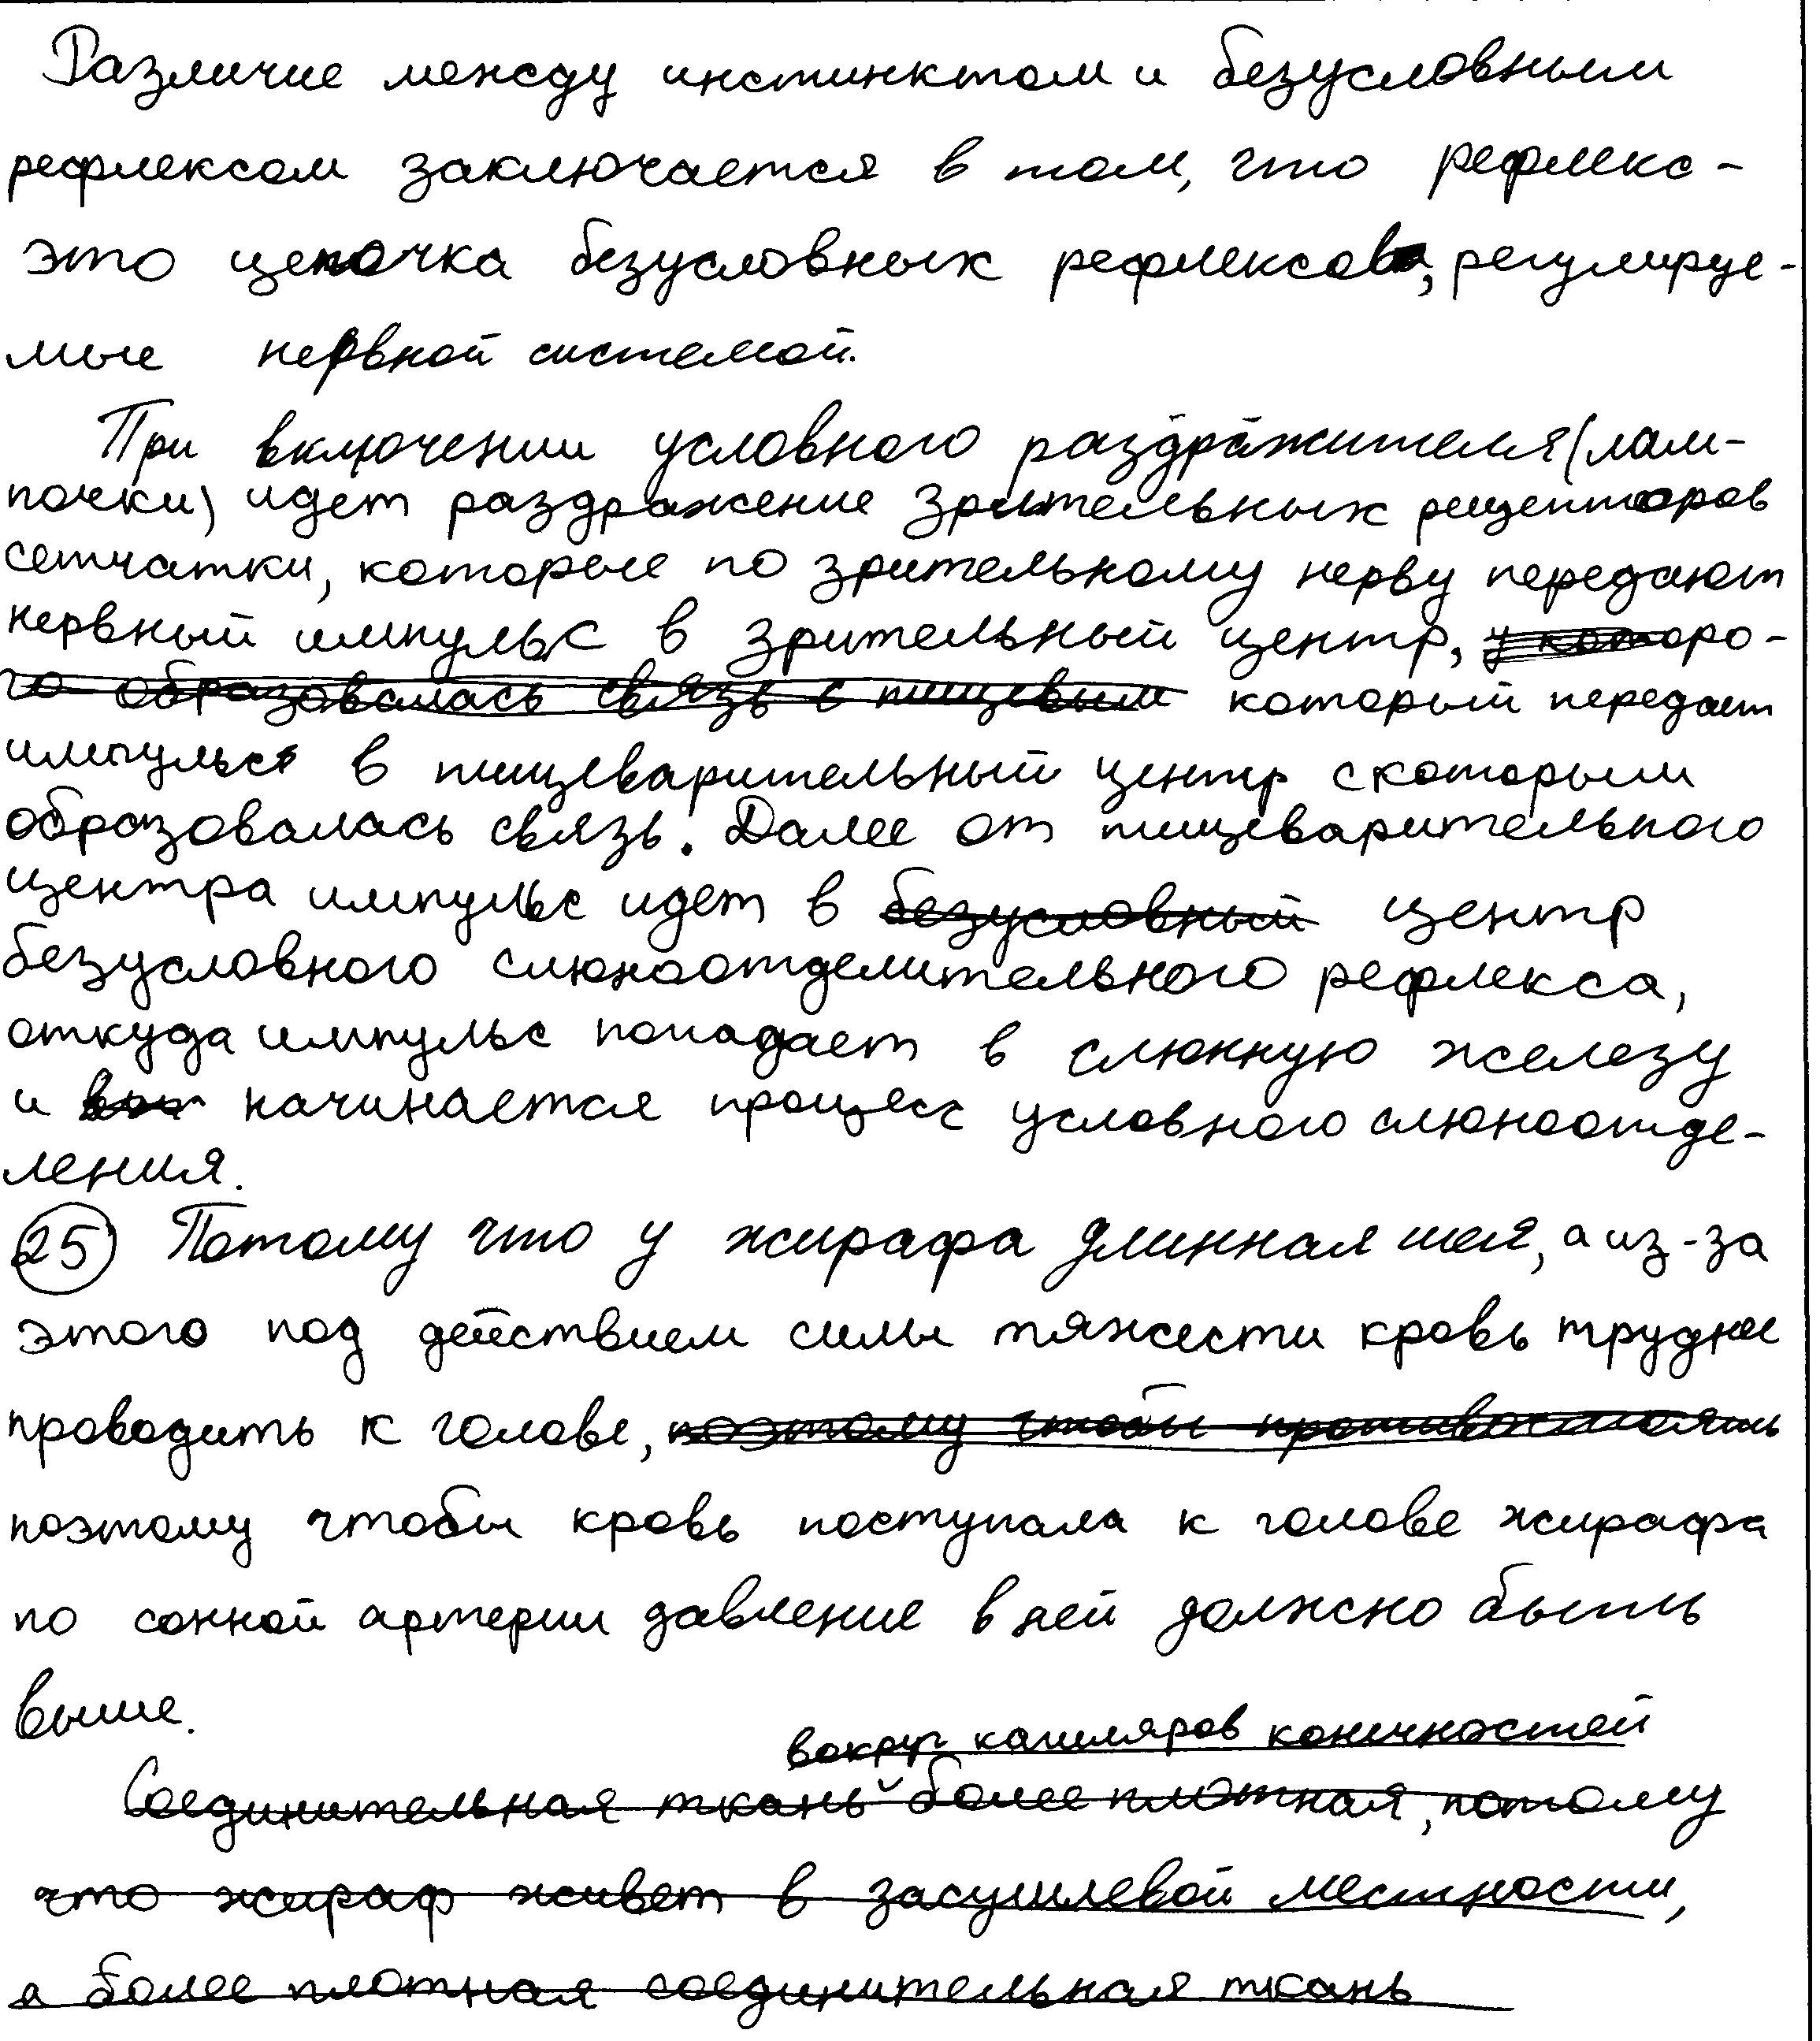 Различие между инстинктом и безусловным
рефлексом заключается в том, что рефлекс -
это цепочка безусловных рефлексов, регулируе-
мые нервной системой.
При включении условного раздражителя (лам-
почки) идет раздражение зрительных рецепторов
сетчатки, которые по зрительному нерву передают
нервный импульс в зрительный центр, у которо-
го образовалась связь с пищевым который передает
импульс в пищеварительный центр с которым
образовалась связь. Далее от пищеварительного
центра импульс идет в безусловный центр
безусловного слюноотделительного рефлекса,
откуда импульс попадает в слюнную железу
и начинается процесс условного слюноотде-
ления.
25 Потому что у жирафа длинная шея, а из-за
этого под действием силы тяжести кровь труднее
проводить к голове, поэтому чтобы противостоять
поэтому чтобы кровь поступала к голове жирафа
по сонной артерии давление в ней должно быть
выше.
вокруг капиляров конечностей
Соединительная ткань более плотная, потому
что жираф живет в засушлевой местности,
а более плотная соединительная ткань